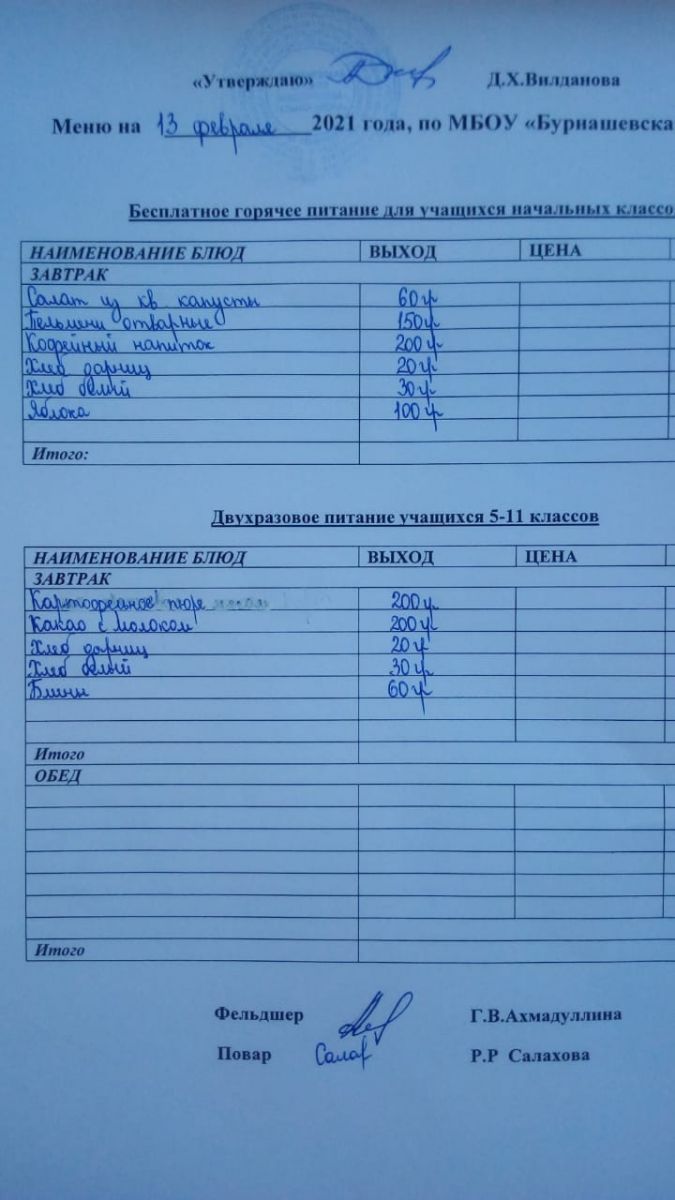 «Утверждаю» Д.Х.Вилданова
Меню на 13 февраля 2021 года, по МБОУ «Бурнашевска
Бесплатное горячее питание для учащихся начальных классо
НАИМЕНОВАНИЕ БЛЮД ВЫХОД ЦЕНА
ЗАВТРАК
Салат из кв капусты 60гр
Пельмени отварные 150гр
Кофейный напиток 200гр
Хлеб дарниц 20гр
Хлеб белый 30гр
Яблока 100гр
Итого:
Двухразовое питание учащихся 5-11 классов
НАИМЕНОВАНИЕ БЛЮД ВЫХОД ЦЕНА
ЗАВТРАК
Картофельное пюре 200гр
Какао с молоком 200гр
Хлеб дарниц 20гр
Хлеб белый 30гр
Блины 60гр
Итого
ОБЕД
Итого
Фельдшер Г.В.Ахмадуллина
Повар Салах Р.Р Салахова